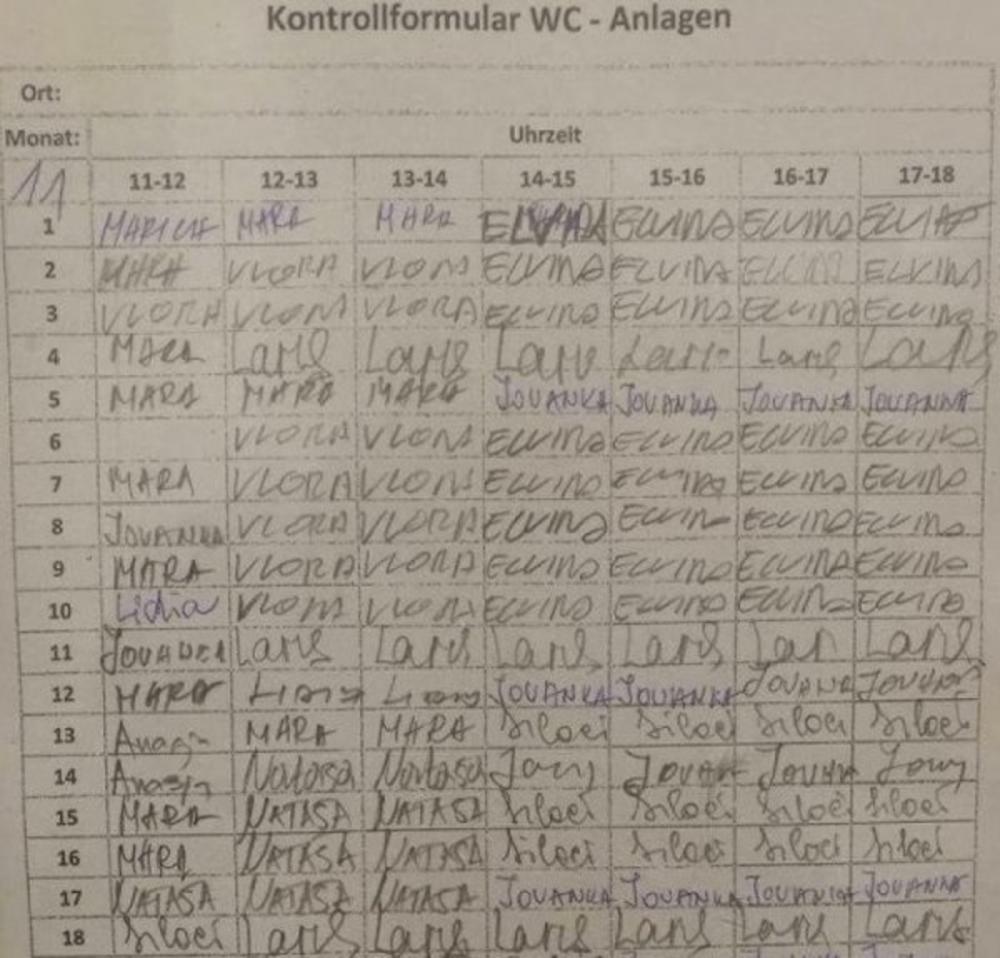 Kontrollformular WC - Anlagen
Ort:
Monat: Uhrzeit
11 11-12 12-13 13-14 14-15 15-16 16-17 17-18
1 MARICA MARA MARA ELVINA ELVINA ELVINA
2 MARA VLORA VLORA ELVINA ELVINA ELVINA ELVINA
3 VLORA VLORA VLORA ELVINA ELVINA ELVINA ELVINA
4 MARA Lans Lans Lans Lans Lans Lans
5 MARA MARA MARA JOVANKA JOVANKA JOVANKA JOVANKA
6 VLORA VLORA ELVINA ELVINA ELVINA ELVINA
7 MARA VLORA VLORA ELVINA ELVINA ELVINA ELVINA
8 JOVANKA VLORA VLORA ELVINA ELVINA ELVINA ELVINA
9 MARA VLORA VLORA ELVINA ELVINA ELVINA ELVINA
10 Lidia VLORA VLORA ELVINA ELVINA ELVINA ELVINA
11 Lans Lans Lans Lans Lan Lans
12 MARA JOVANKA JOVANKA JOVANKA JOVANKA
13 MARA MARA Siloei Siloei Siloei Siloei
14 Natasa Natasa Jovan Jovan
15 MARA NATASA NATASA Siloei Siloei Siloei Siloei
16 MARA NATASA NATASA Siloei Siloei Siloei Siloei
17 NATASA NATASA NATASA JOVANKA JOVANKA JOVANKA JOVANKA
18 Siloei Lans Lans Lans Lans Lans Lans